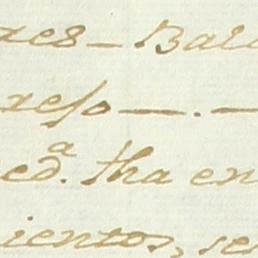 res – Bal
reso –.–
ed.ª tha en
ientos, se